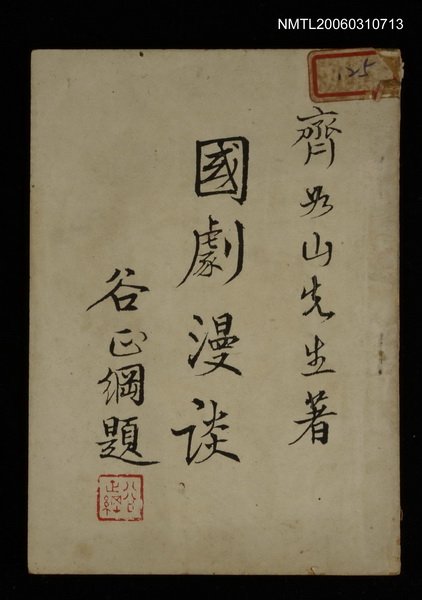 NMTL20060310713
125
齊如山先生著
國劇漫談
谷正綱題
谷正綱